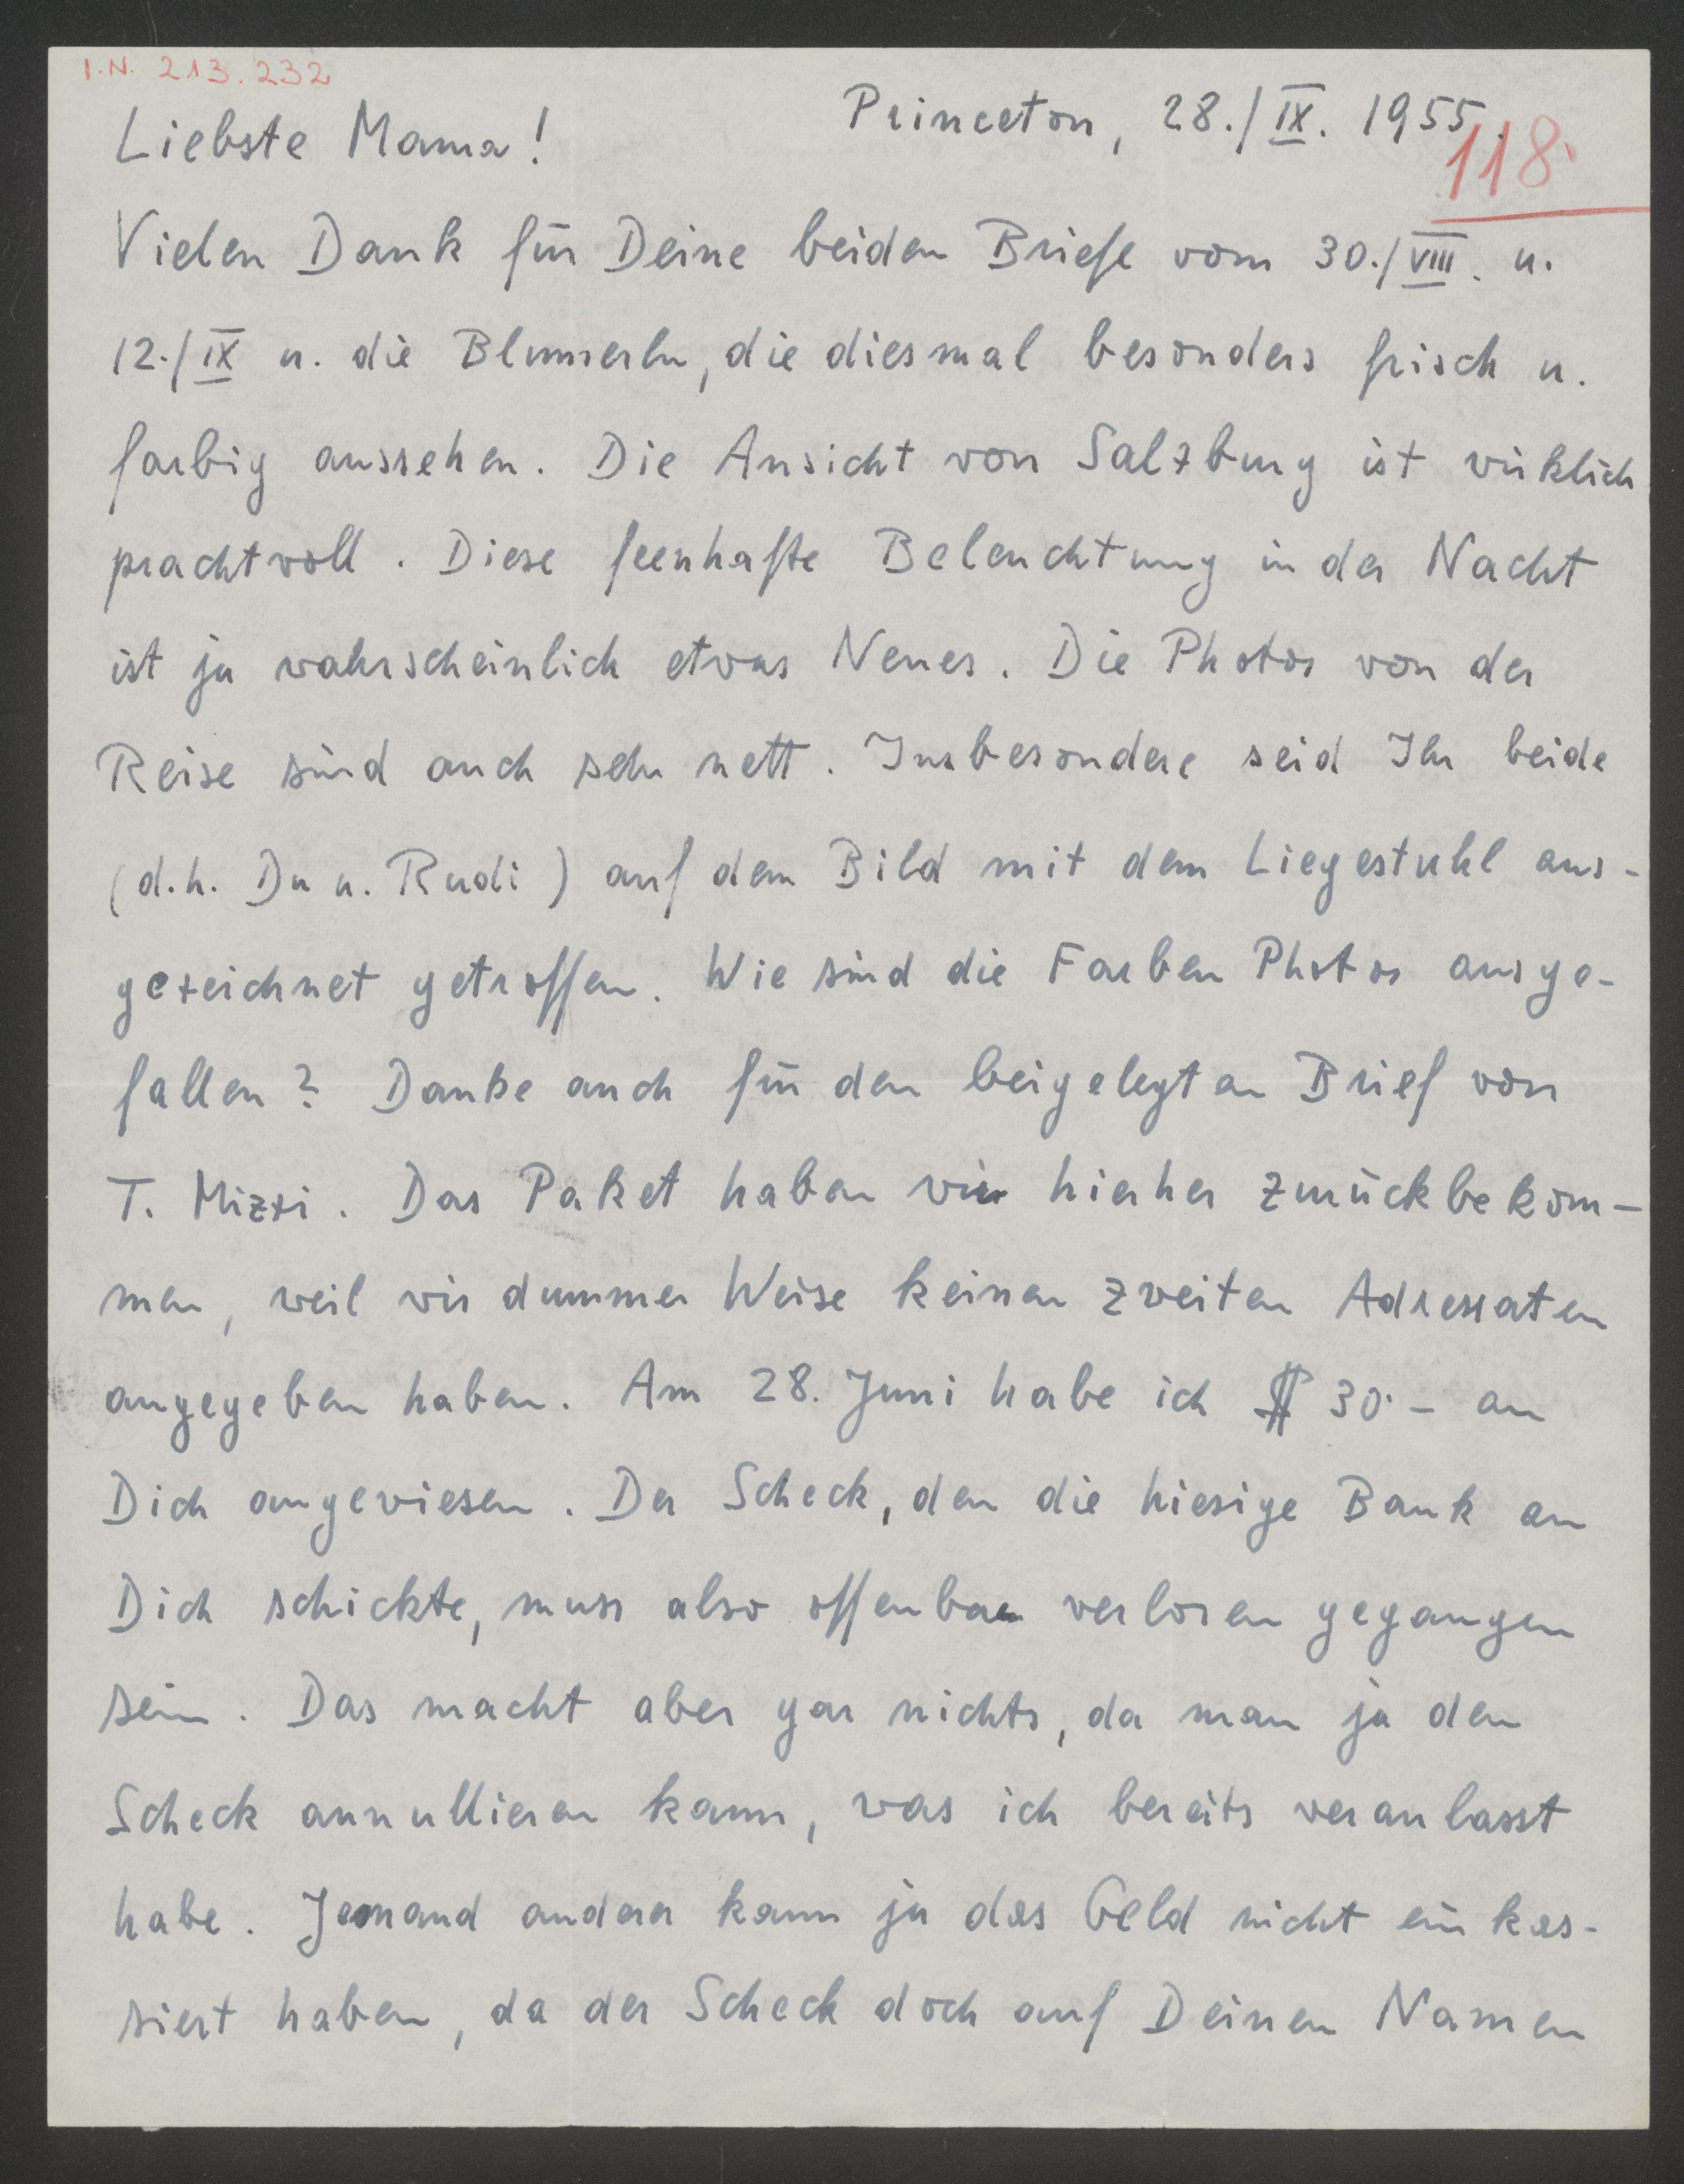 I.N. 213.232
Princeton, 28./IX. 1955.
118.
Liebste Mama!
Vielen Dank für Deine beiden Briefe vom 30./VIII. u.
12./IX u. die Blumerln, die diesmal besonders frisch u.
farbig aussehen. Die Ansicht von Salzburg ist wirklich
prachtvoll. Diese feenhafte Beleuchtung in der Nacht
ist ja wahrscheinlich etwas Neues. Die Photos von der
Reise sind auch sehr nett. Insbesondere seid Ihr beide
(d.h. Du u. Rudi) auf dem Bild mit dem Liegestuhl aus-
gezeichnet getroffen. Wie sind die Farben Photos ausge-
fallen? Danke auch für den beigelegten Brief von
T. Mizzi. Das Paket haben wir hierher zurückbekom-
men, weil wir dummer Weise keinen zweiten Adressaten
angegeben haben. Am 28. Juni habe ich $ 30.- an
Dich angewiesen. Der Scheck, den die hiesige Bank an
Dich schickte, muss also offenbar verloren gegangen
sein. Das macht aber gar nichts, da man ja den
Scheck annullieren kann, was ich bereits veranlasst
habe. Jemand anderer kann ja das Geld nicht einkas-
siert haben, da der Scheck doch auf Deinen Namen